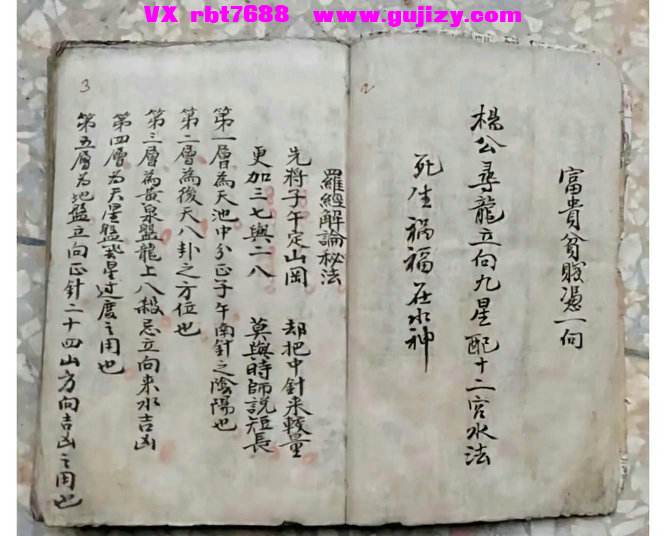 VX rbt7688 www.gujizy.com
2
富貴貧賤憑一向
楊公尋龍立向九星配十二宮水法
死生禍福在水神
3
羅經解論秘法
先將子午定山岡 却把中針來較量
更加三七與二八 莫與時師說短長
第一層為天池中分正子午南針之陰陽也
第二層為後天八卦之方位也
第三層為黃泉盤龍上八殺忌立向来水吉凶
第四層为天星盤九星过度之用也
第五層为地盤立向正針二十四山方向吉凶之用也